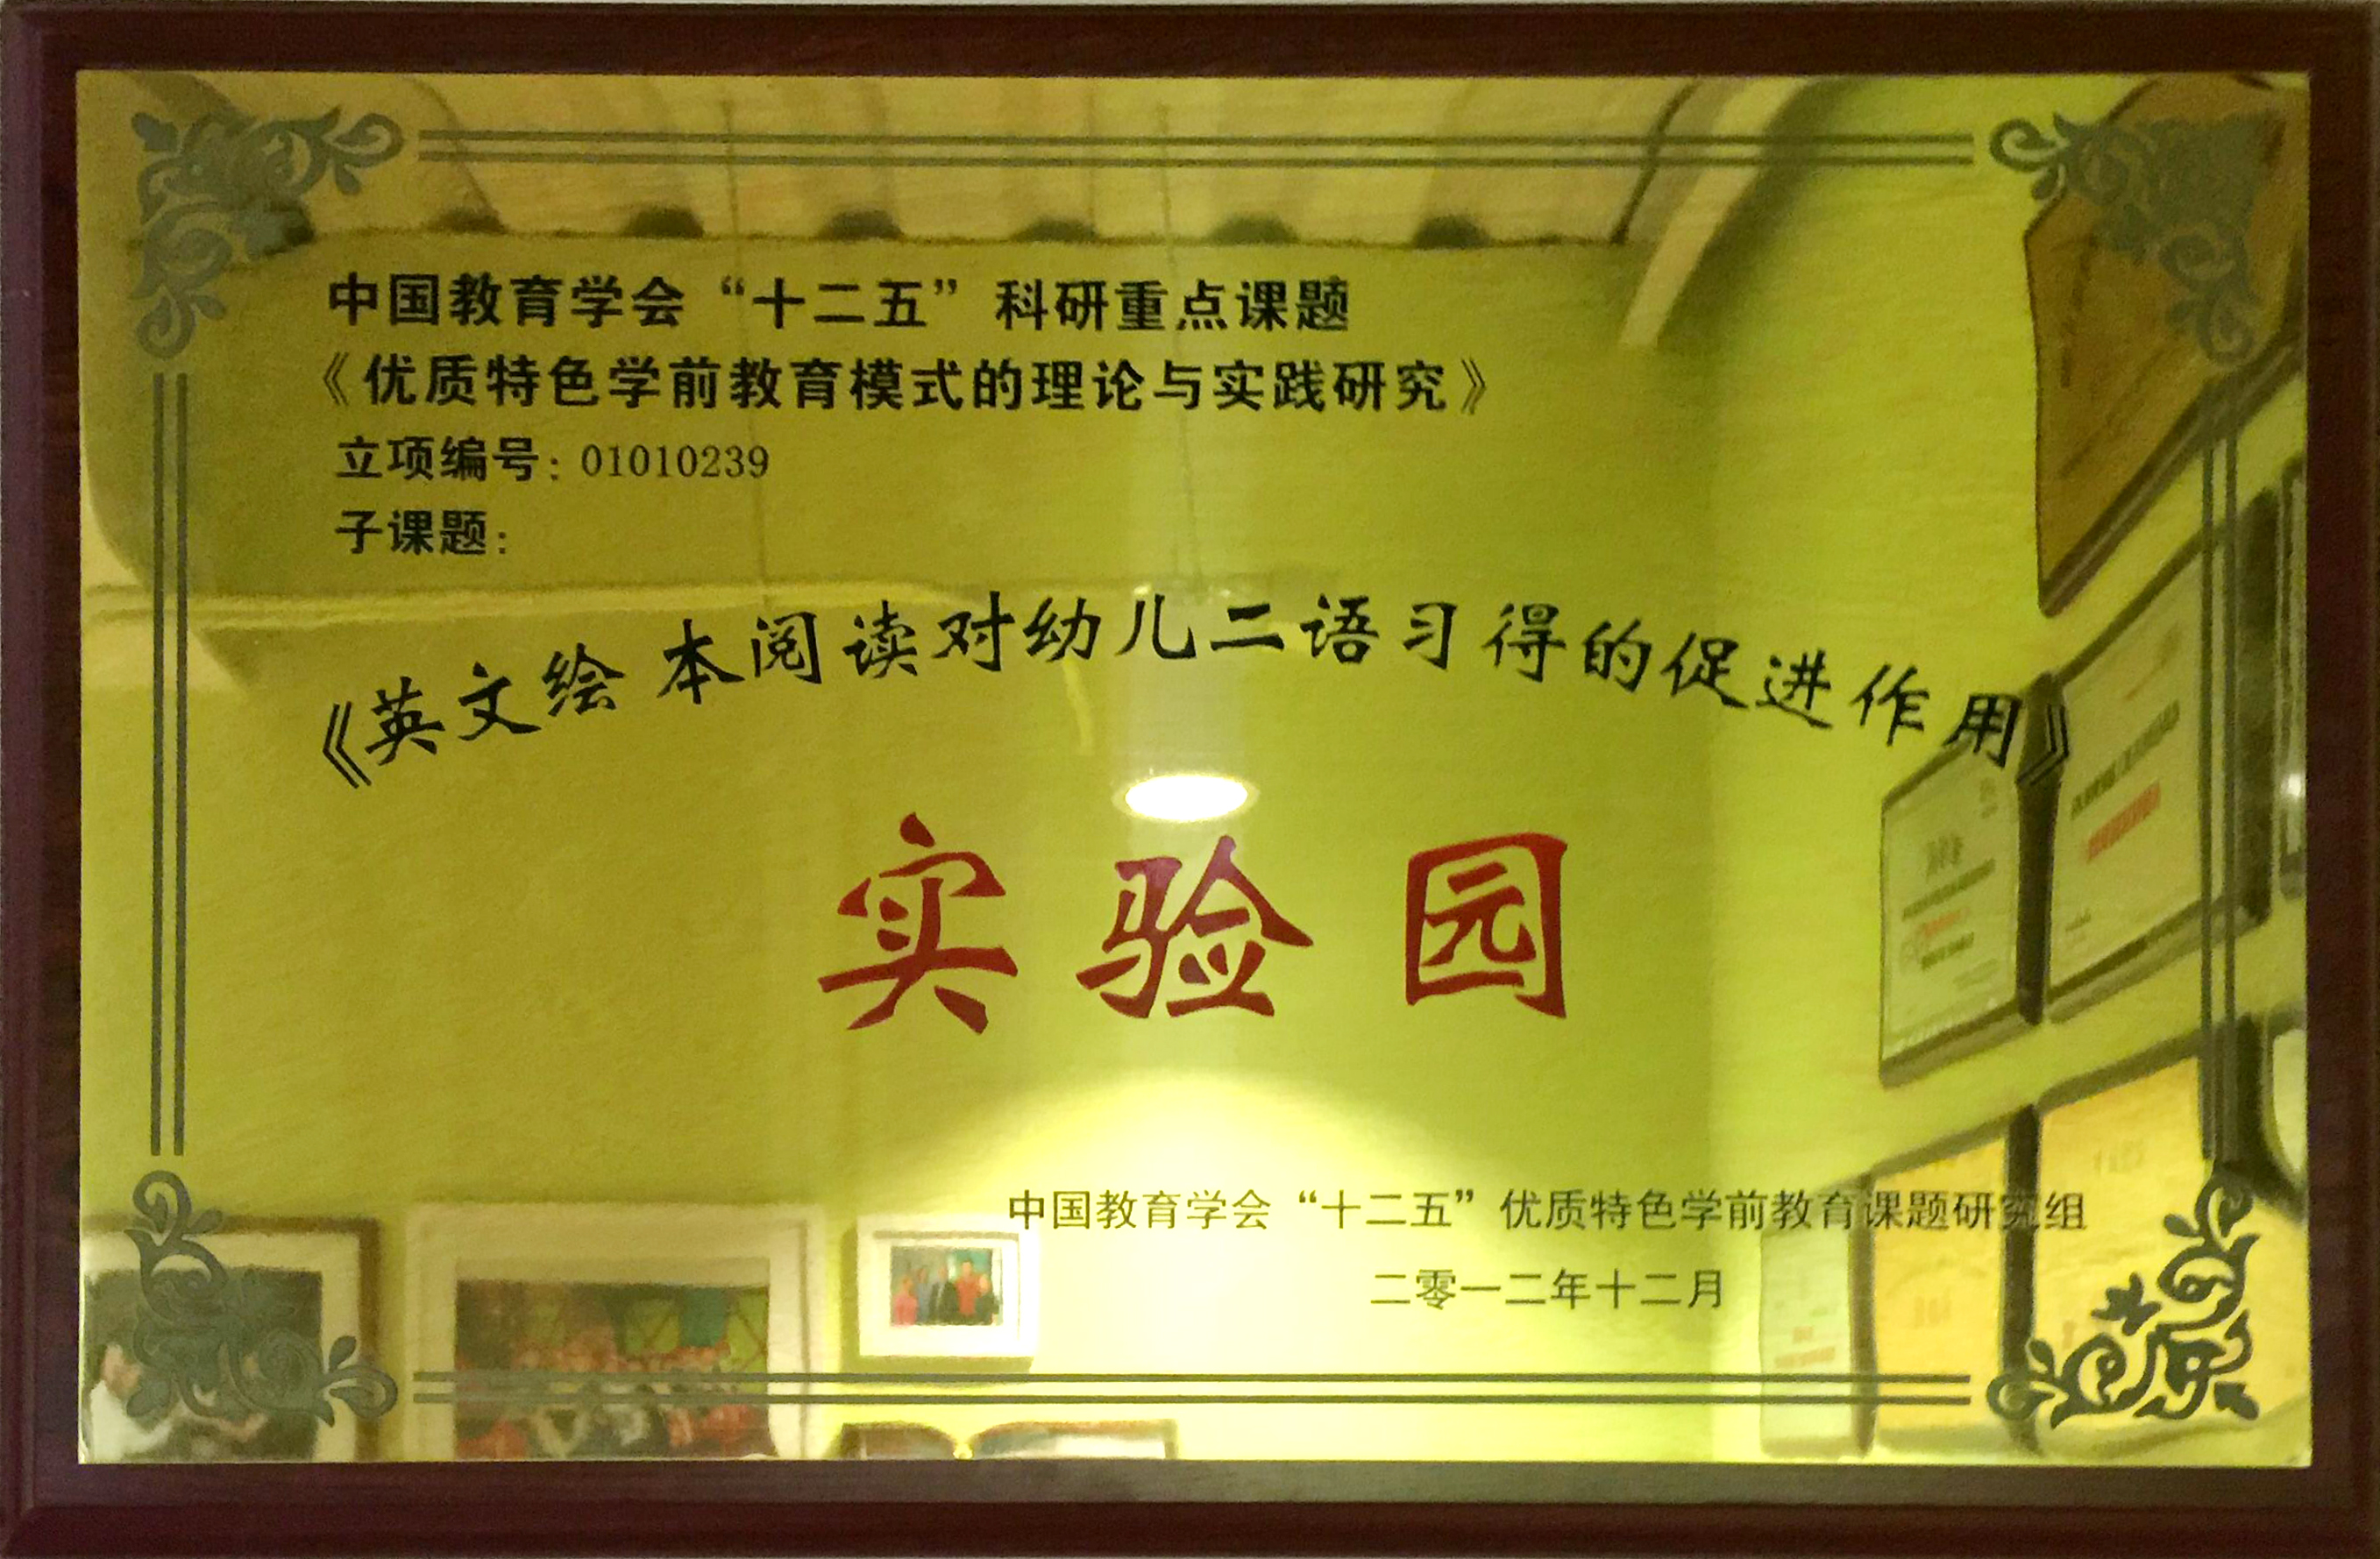 中国教育学会“十二五”科研重点课题
《优质特色学前教育模式的理论与实践研究》
立项编号：01010239
子课题：
《英文绘本阅读对幼儿二语习得的促进作用》
实验园
中国教育学会“十二五”优质特色学前教育课题研究组
二零一二年十二月